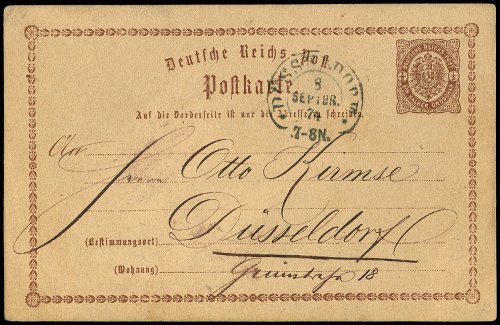 Deutsche Reichs-Post.
Postkarte
DÜSSELDORF
8
SEPTBR.
74
7-8N.
Auf die Vorderseite ist nur die Adresse zu schreiben.
An
Herrn Otto Kirmse
Düsseldorf
(Bestimmungsort)
(Wohnung) Grünstraße 18